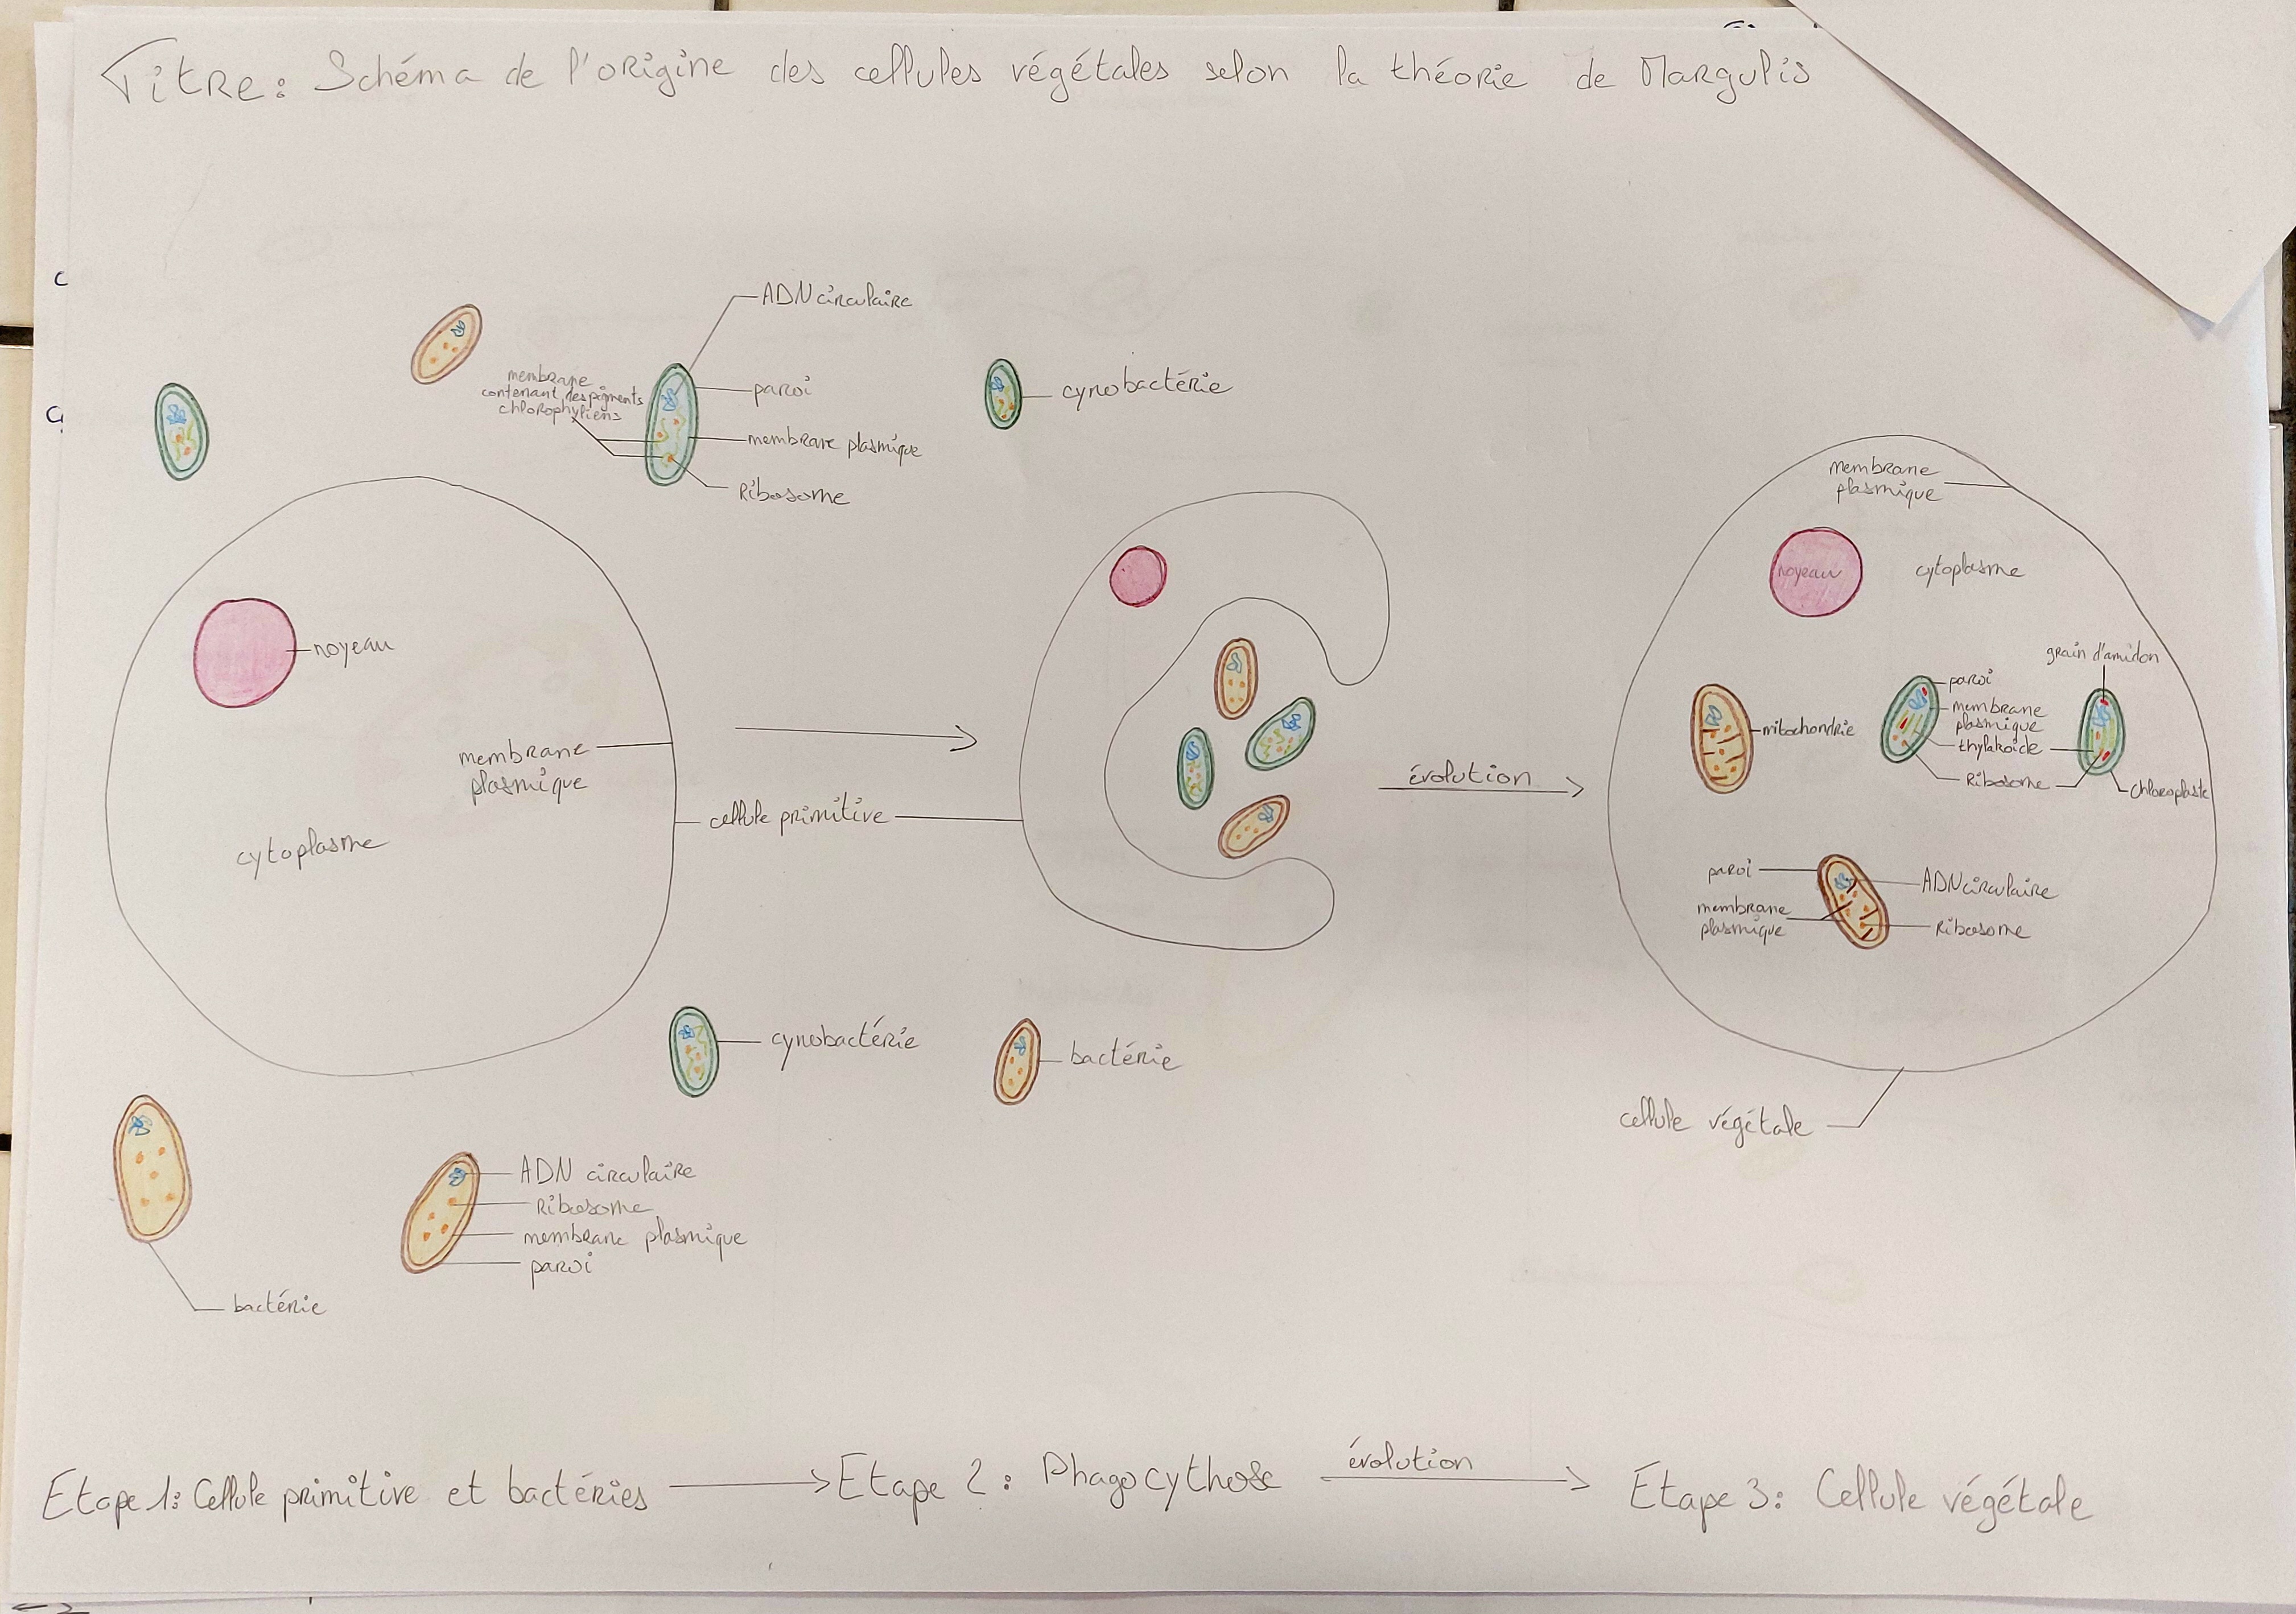 Titre: Schéma de l'origine des cellules végétales selon la théorie de Margulis
ADN circulaire
membrane
contenant des pigments
chlorophyliens
paroi
membrane plasmique
Ribosome
cynobactérie
noyeau
membrane
plasmique
cellule primitive
cytoplasme
évolution
membrane
plasmique
noyeau
cytoplasme
grain d'amidon
paroi
membrane
plasmique
thylakoïde
Ribosome
chloroplaste
mitochondrie
paroi
membrane
plasmique
ADN circulaire
Ribosome
cellule végétale
cynobactérie
bactérie
ADN circulaire
Ribosome
membrane plasmique
paroi
bactérie
Etape 1: Cellule primitive et bactéries
Etape 2: Phagocythose
évolution
Etape 3: Cellule végétale